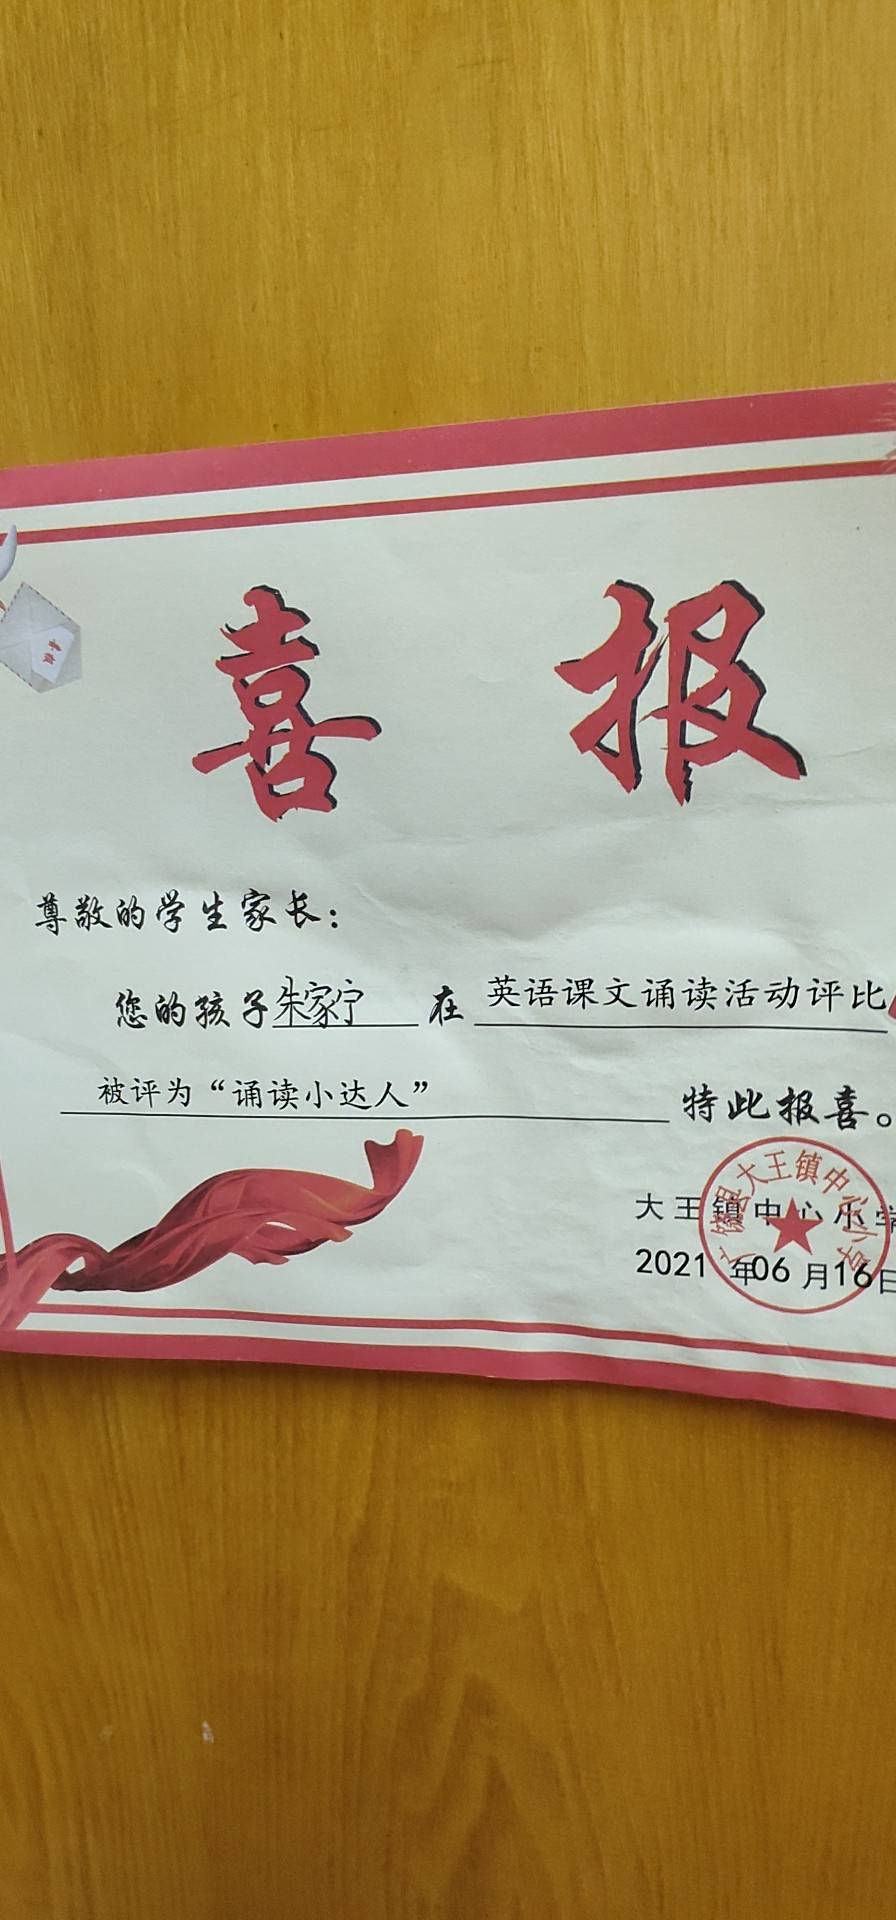 喜报
尊敬的学生家长：
您的孩子朱家宁 在 英语课文诵读活动评比
被评为“诵读小达人” 特此报喜。
大王镇中心小学
2021 年06 月16日
大王镇中心小学